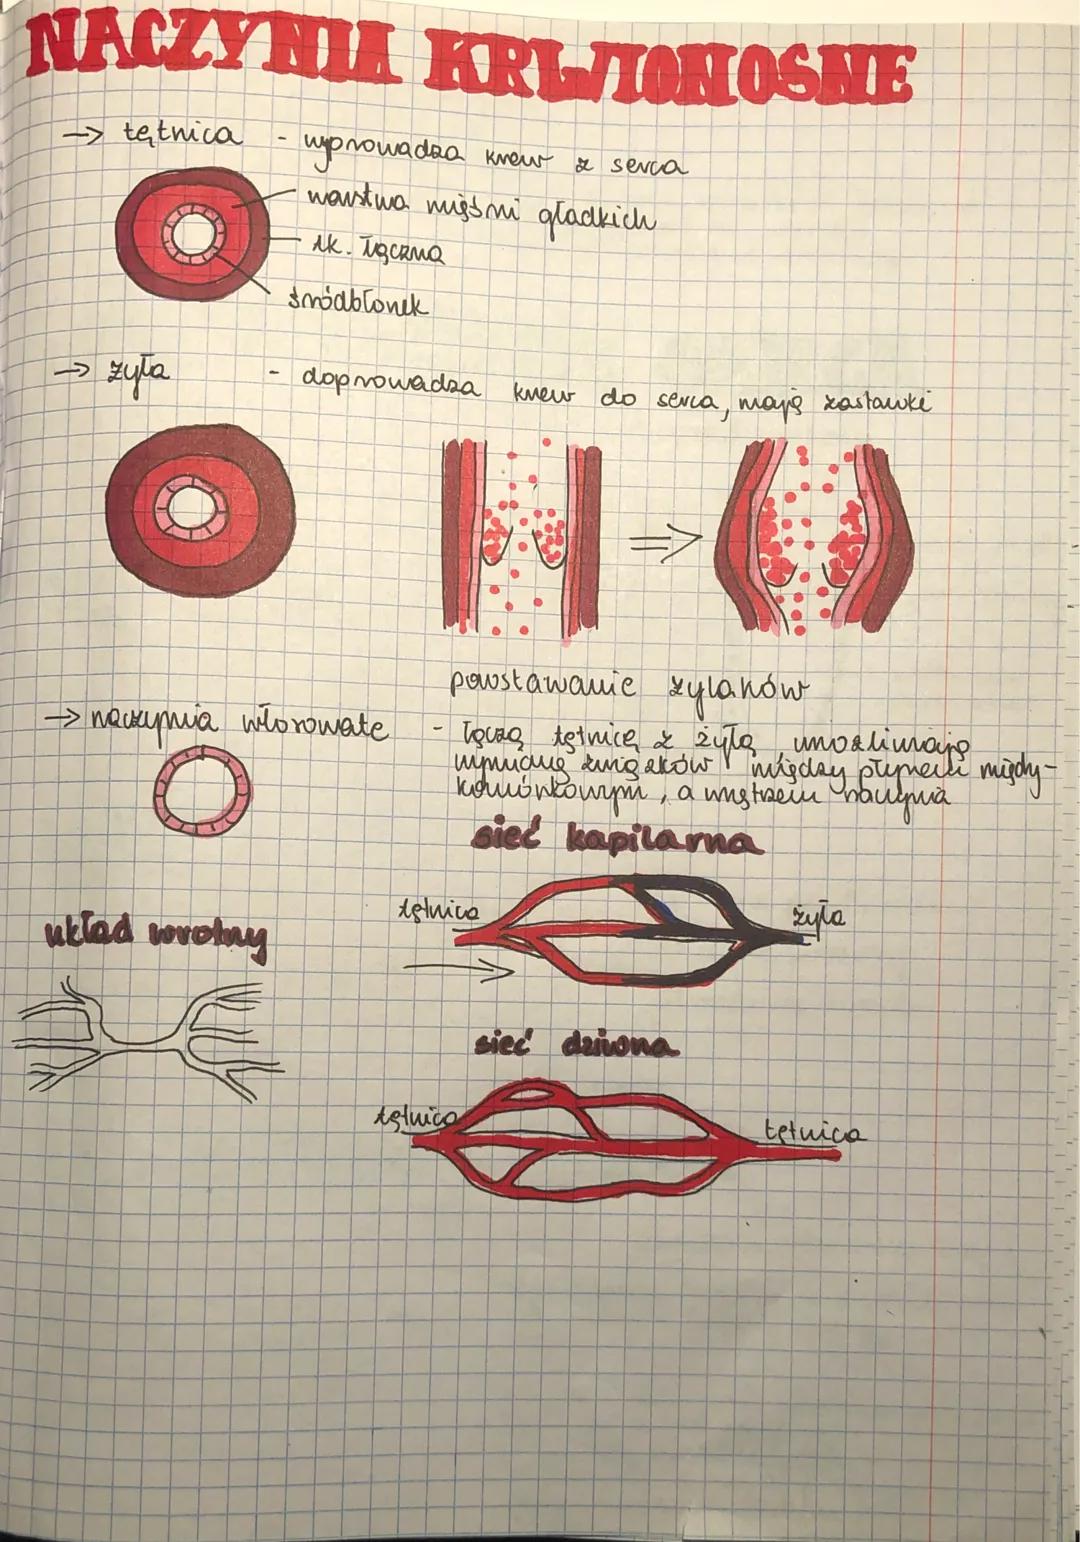 NACZYNIA KRWIONOŚNE
→ tętnica - wyprowadza krew z serca
warstwa mięśni gładkich
tk. łączna
śródbłonek
→ żyła - doprowadza krew do serca, mają zastawki
⇒
powstawanie żylaków
→ naczynia włosowate - łączą tętnicę z żyłą, umożliwiają
wymianę związków między płynem między-
komórkowym, a wnętrzem naczynia
sieć kapilarna
tętnica
żyła
układ wrotny
sieć dziwna
tętnica
tętnica